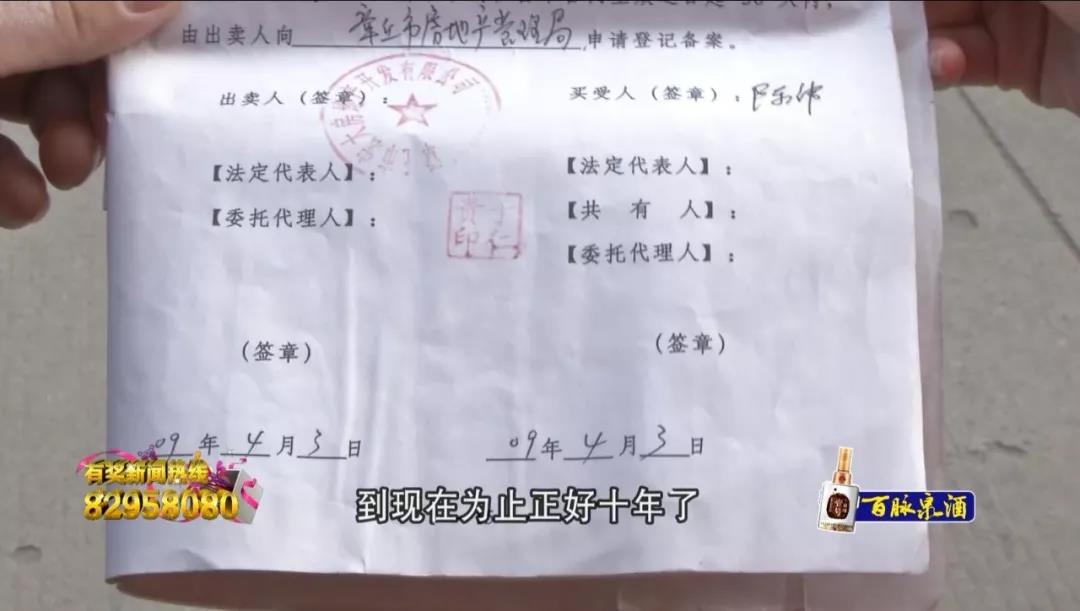 由出卖人向 章丘市房地产管理局 申请登记备案。
出卖人（签章）：
开发有限公司
买受人（签章）：
【法定代表人】：
【委托代理人】：
【法定代表人】：
【共 有 人】：
【委托代理人】：
贵丁
印仁
（签章）
（签章）
09年4月3日
09年4月3日
有奖新闻热线
82958080
到现在为止正好十年了
百脉泉酒